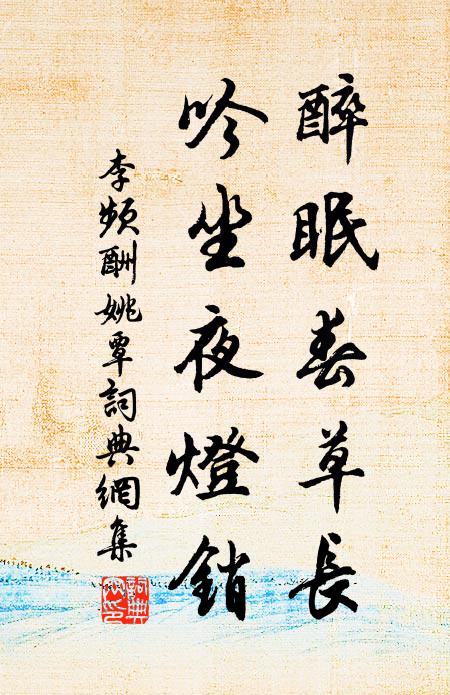 醉眠春草長
吟坐夜燈銷
李頻酬姚覃詞典網集